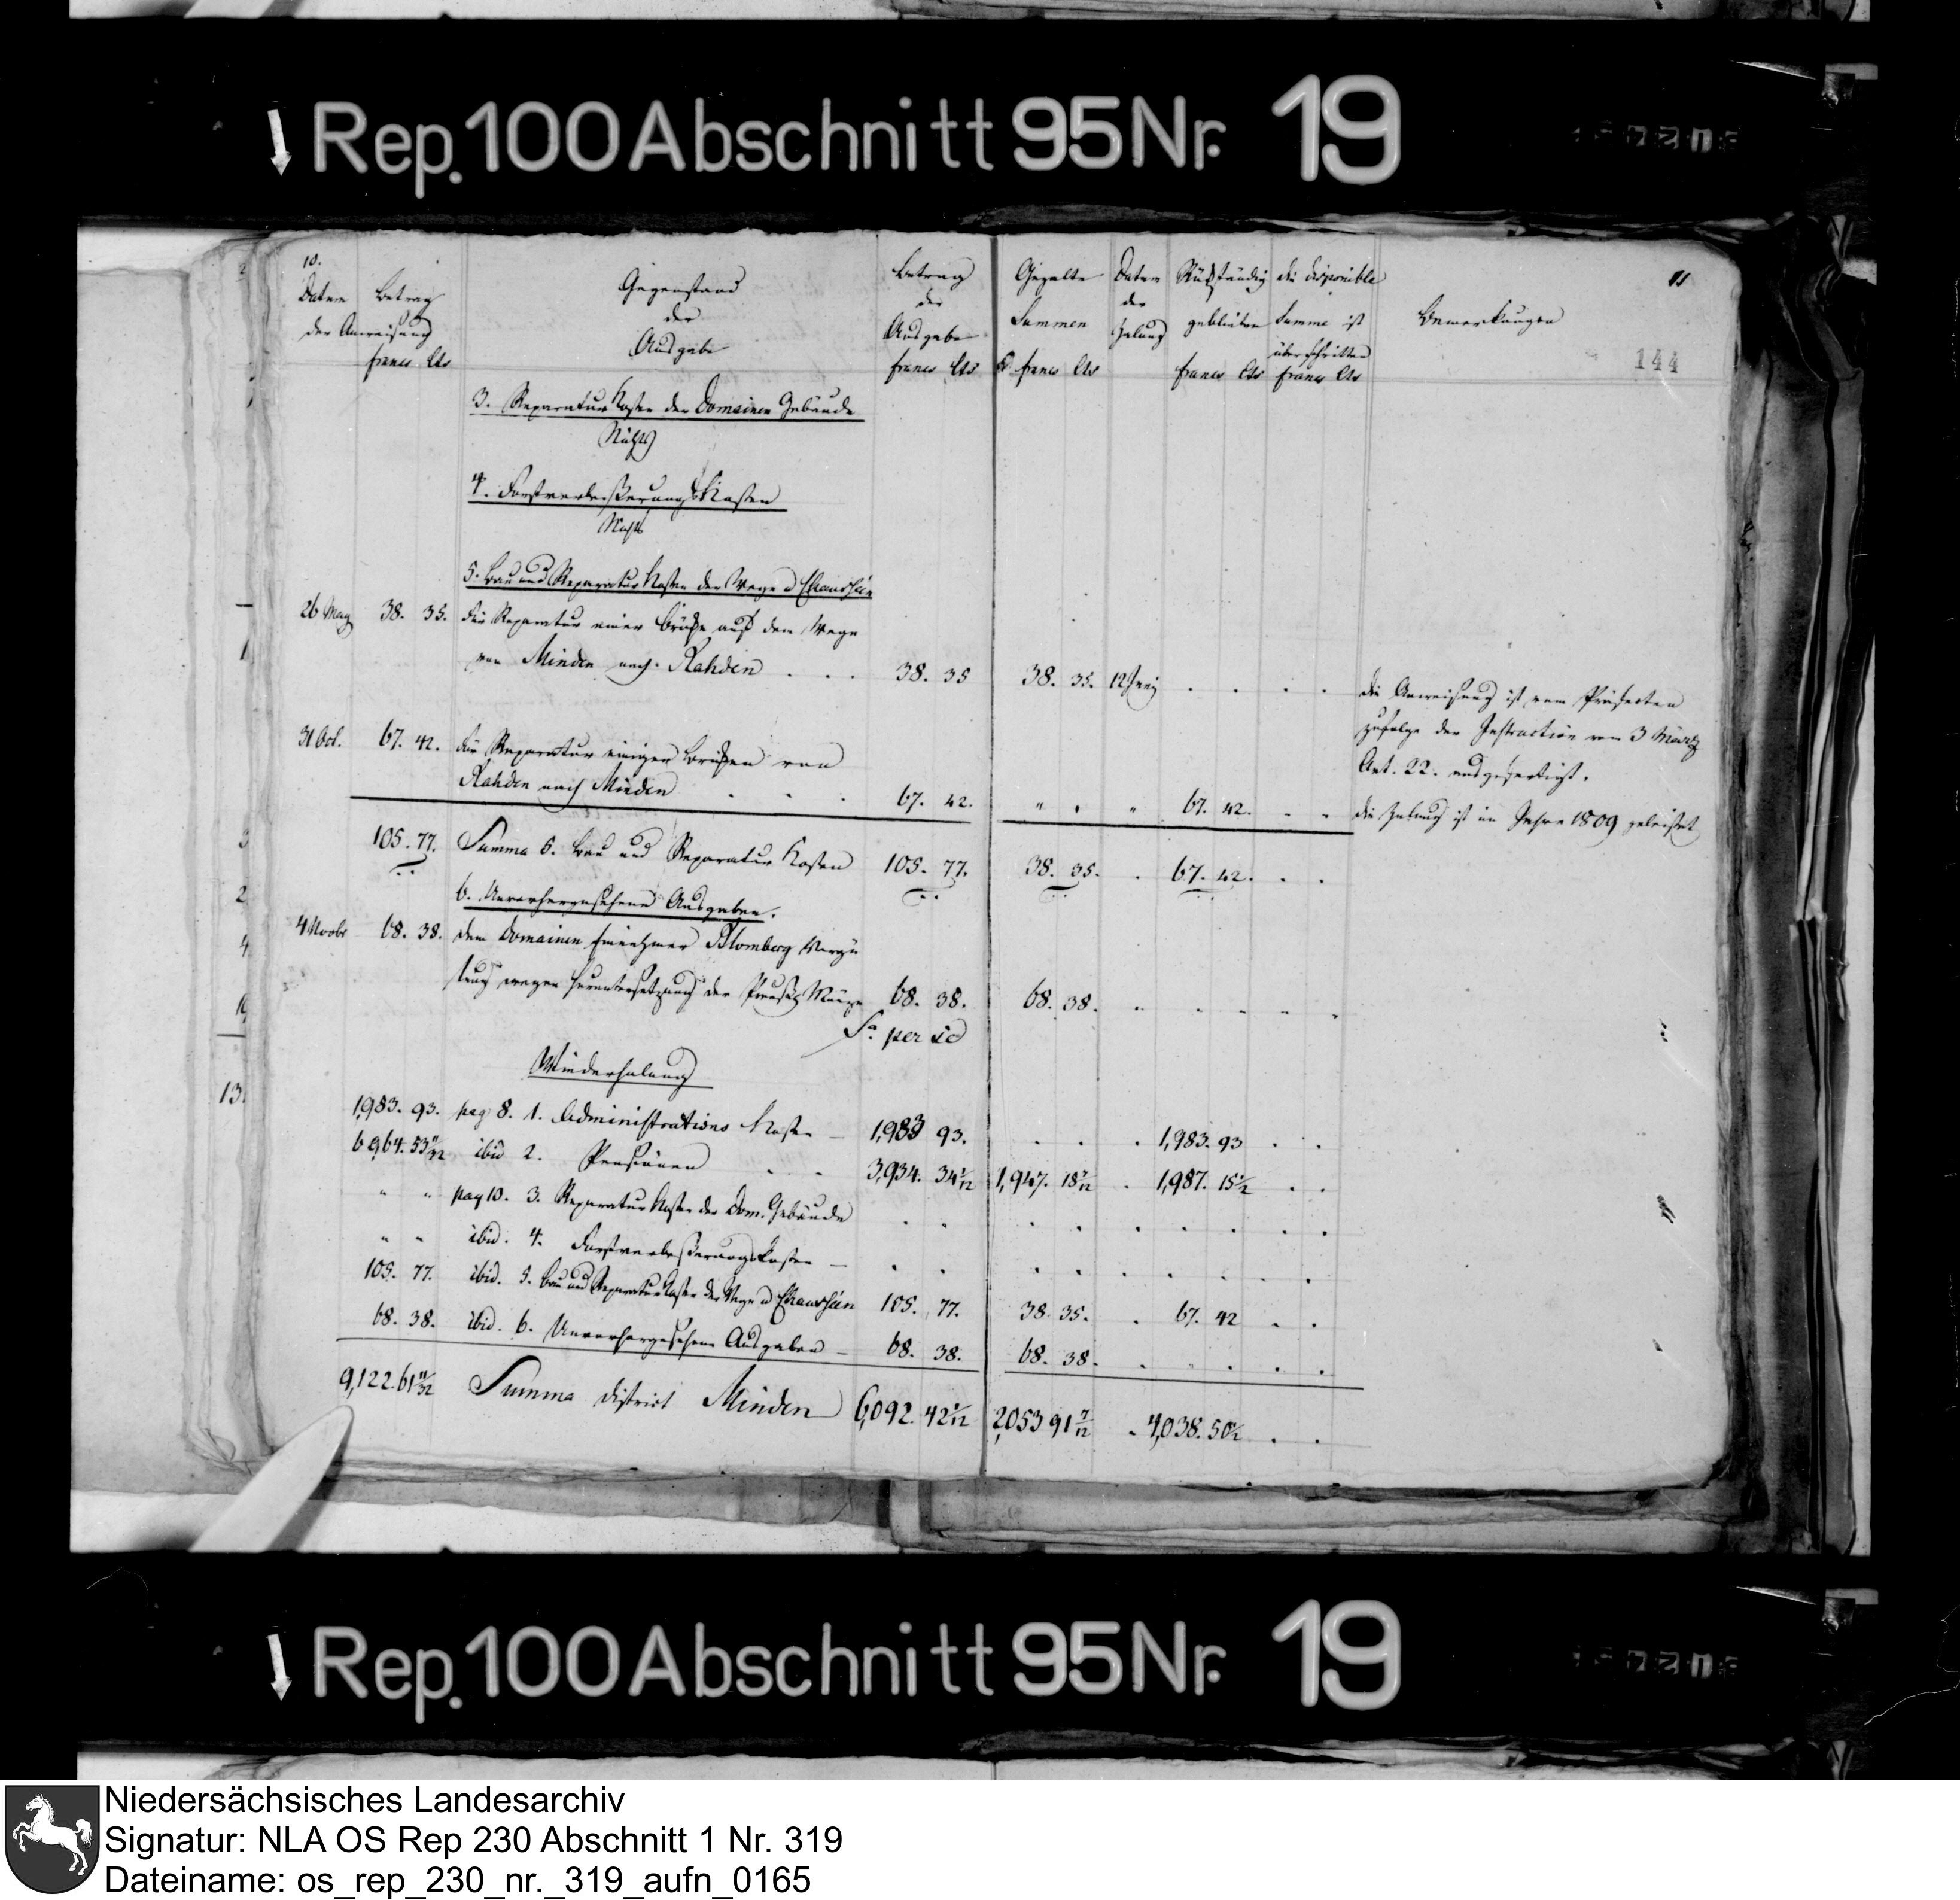 Rep. 100 Abschnitt 95 Nr. 19
10.
Datum Betrag
der Anweisung
francs Cts
Gegenstand
der
Ausgabe
Betrag
der
Ausgabe
francs Cts
Gezalte
Summen
francs Cts
Datum
der
Zalung
Rükständig
geblieben
francs Cts
die disponible
Summe ist
überschritten
francs Cts
Bemerkungen
11
144
3. Reparatur Kosten der Domainen Gebäude
Nichts
4. Forstverbeßerungs Kosten
Nichts
5. Bau und Reparatur Kosten der Wege u Chausséen
26 May 38. 35. für Reparatur einer Brücke auf dem Wege
von Minden nach Rahden . . . 38. 35 38. 35. 12 Juny . . . .
die Anweisung ist vom Präfecten
zufolge der Instruction vom 3 Maerz
Art. 22. ausgefertigt.
31 Oct. 67. 42. für Reparatur einiger Brücken von
Rahden nach Minden . . . 67. 42. " . " 67. 42. . . die Zalung ist im Jahre 1809 geleistet
105. 77. Summa 5. Bau und Reparatur Kosten 105. 77. 38. 35. . 67. 42. . .
6. Unvorhergesehene Ausgaben.
4 Novbr 68. 38. dem Domainen Einnehmer Blomberg Vergü
tung wegen Heruntersetzung der Preuß. Münze 68. 38. 68. 38. . . . . .
Sa. per se
Wiederholung
1,983. 93. pag. 8. 1. Administrations Kosten — 1,983 93. . . . 1,983. 93 . .
6,964. 53 11/32 ibid 2. Pensionen . . 3,934. 34 1/12 1,947. 18 7/12 . 1,987. 15 1/2 . .
" " pag 10. 3. Reparatur Kosten der Dom. Gebäude . . . . . . . . .
" " ibid. 4. Forstverbeßerungskosten — . . . . . . . . .
105. 77. ibid. 5. Bau und Reparatur Kosten der Wege u Chausséen 105. 77. 38. 35. . 67. 42 . .
68. 38. ibid. 6. Unvorhergesehene Ausgaben — 68. 38. 68. 38. . . . . .
9,122. 61 11/32 Summa District Minden 6,092. 42 1/12 2,053 91 7/12 . 4,038. 50 1/2 . .
Rep. 100 Abschnitt 95 Nr. 19
Niedersächsisches Landesarchiv
Signatur: NLA OS Rep 230 Abschnitt 1 Nr. 319
Dateiname: os_rep_230_nr._319_aufn_0165